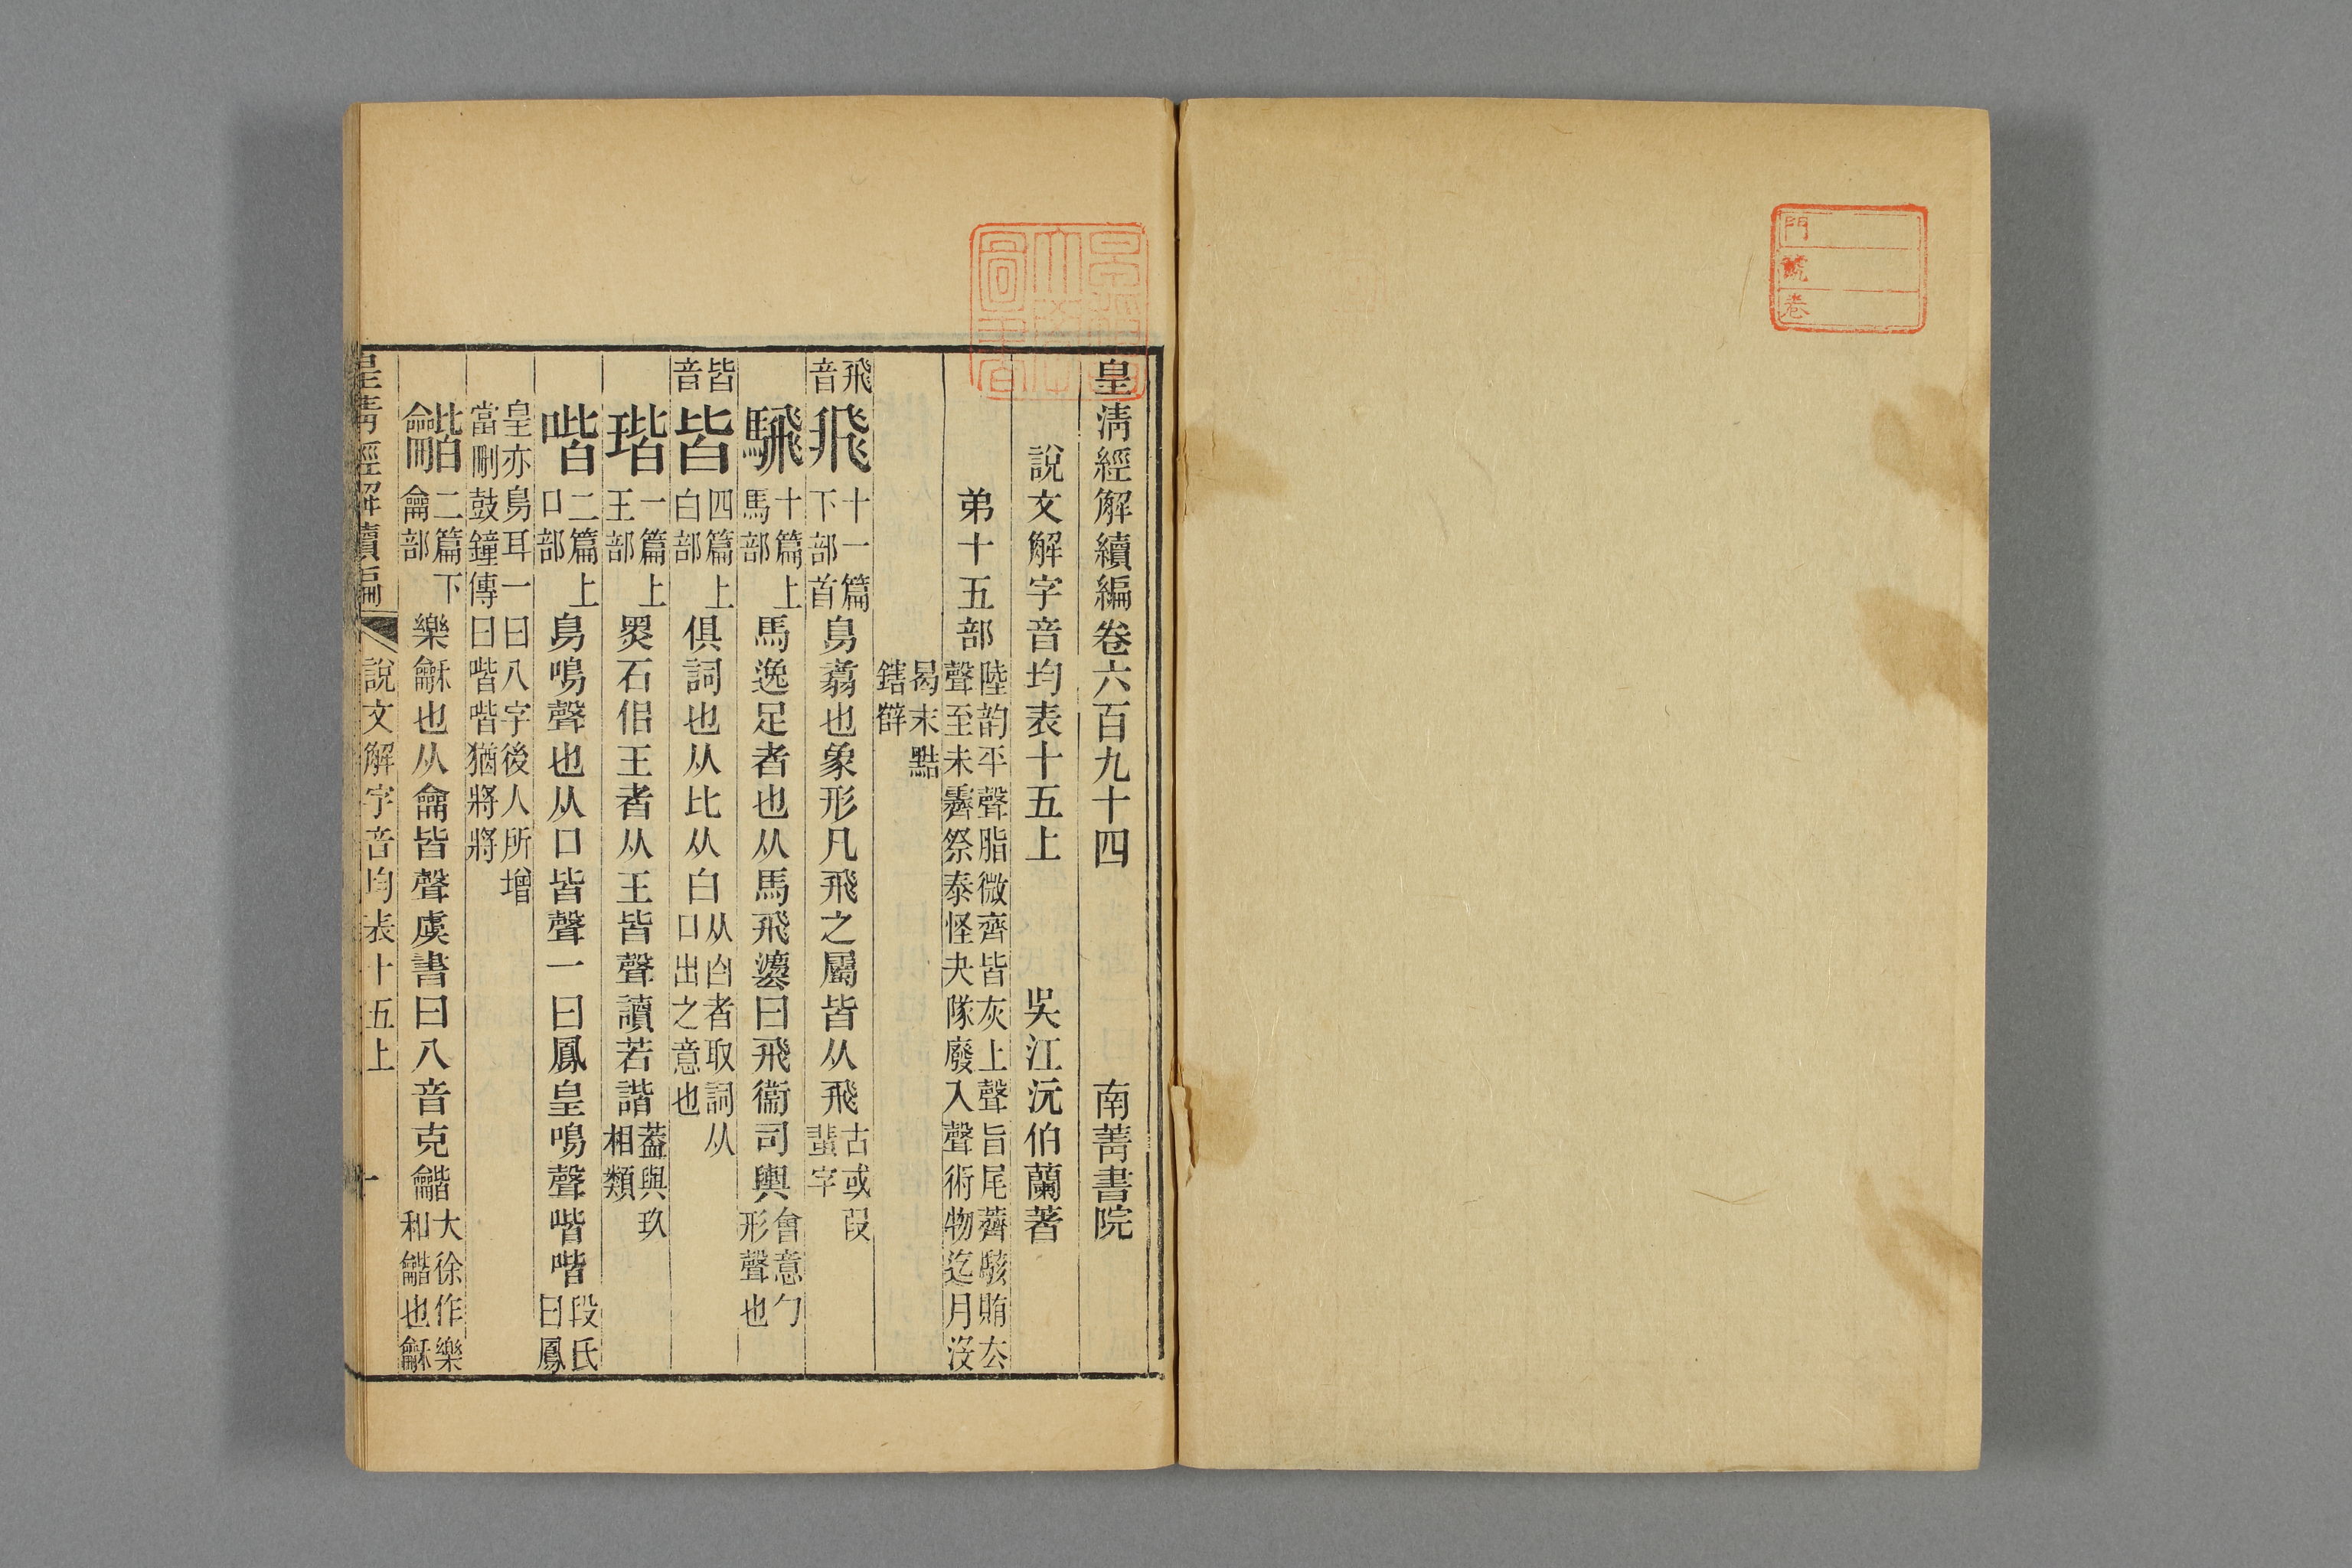 門
號
卷
皇清經解續編卷六百九十四 南菁書院
說文解字音均表十五上 吳江沅伯蘭著
弟十五部
陸韵平聲脂微齊皆灰上聲旨尾薺駭賄去
聲至未霽祭泰怪夬隊廢入聲術物迄月沒
曷末黠
鎋薛
飛音
飛
十一篇
下部首
鳥翥也象形凡飛之屬皆从飛
古或叚
蜚字
騛
十篇上
馬部
馬逸足者也从馬飛灋曰飛衞司輿
會意勹
形聲也
皆音
皆
四篇上
白部
俱詞也从比从白
从白者取詞从
口出之意也
瑎
一篇上
王部
黑石佀王者从王皆聲讀若諧
蓋與玖
相類
喈
二篇上
口部
鳥鳴聲也从口皆聲一曰鳳皇鳴聲喈喈
段氏
曰鳳
皇亦鳥耳一曰八字後人所增
當刪鼓鐘傳曰喈喈猶將將
龤
二篇下
龠部
樂龢也从龠皆聲虞書曰八音克龤
大徐作樂
和龤也龢
皇清經解續編 說文解字音均表十五上 一